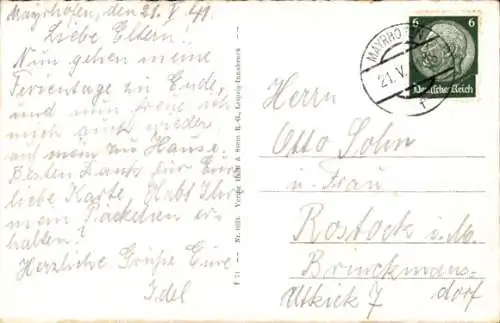 Mayrhofen, den 21. V. 41.
Liebe Eltern!
Nun gehen meine
Ferientage zu Ende,
und nun freue ich
mich auch wieder
auf mein zu Hause.
Besten Dank für Eure
liebe Karte. Habt Ihr
mein Päckchen er-
halten?
Herzliche Grüße Eure
Idel
f 21 — Nr. Verlag & Stern K.-G., Leipzig-Innsbruck
6 6
Deutsches Reich
MAYRHOFEN
21. V.
f
Herrn
Otto Sohn
u. Frau
Rostock i. M.
Brinckmans-
dorf
Utkiek 7